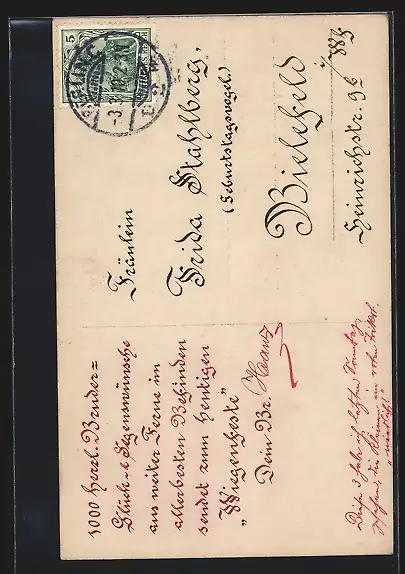 1000 herzl. Bruder=
Glück- & Segenswünsche
aus weiter Ferne im
allerbesten Befinden
sendet zum heutigen
„Wiegenfeste"
Dein Br. Hans
5
Fräulein
Frida Stahlberg,
(Geburtstagsvogel.)
Bielefeld
Heinrichstr. 9b
letzten Sonntag
in rotem